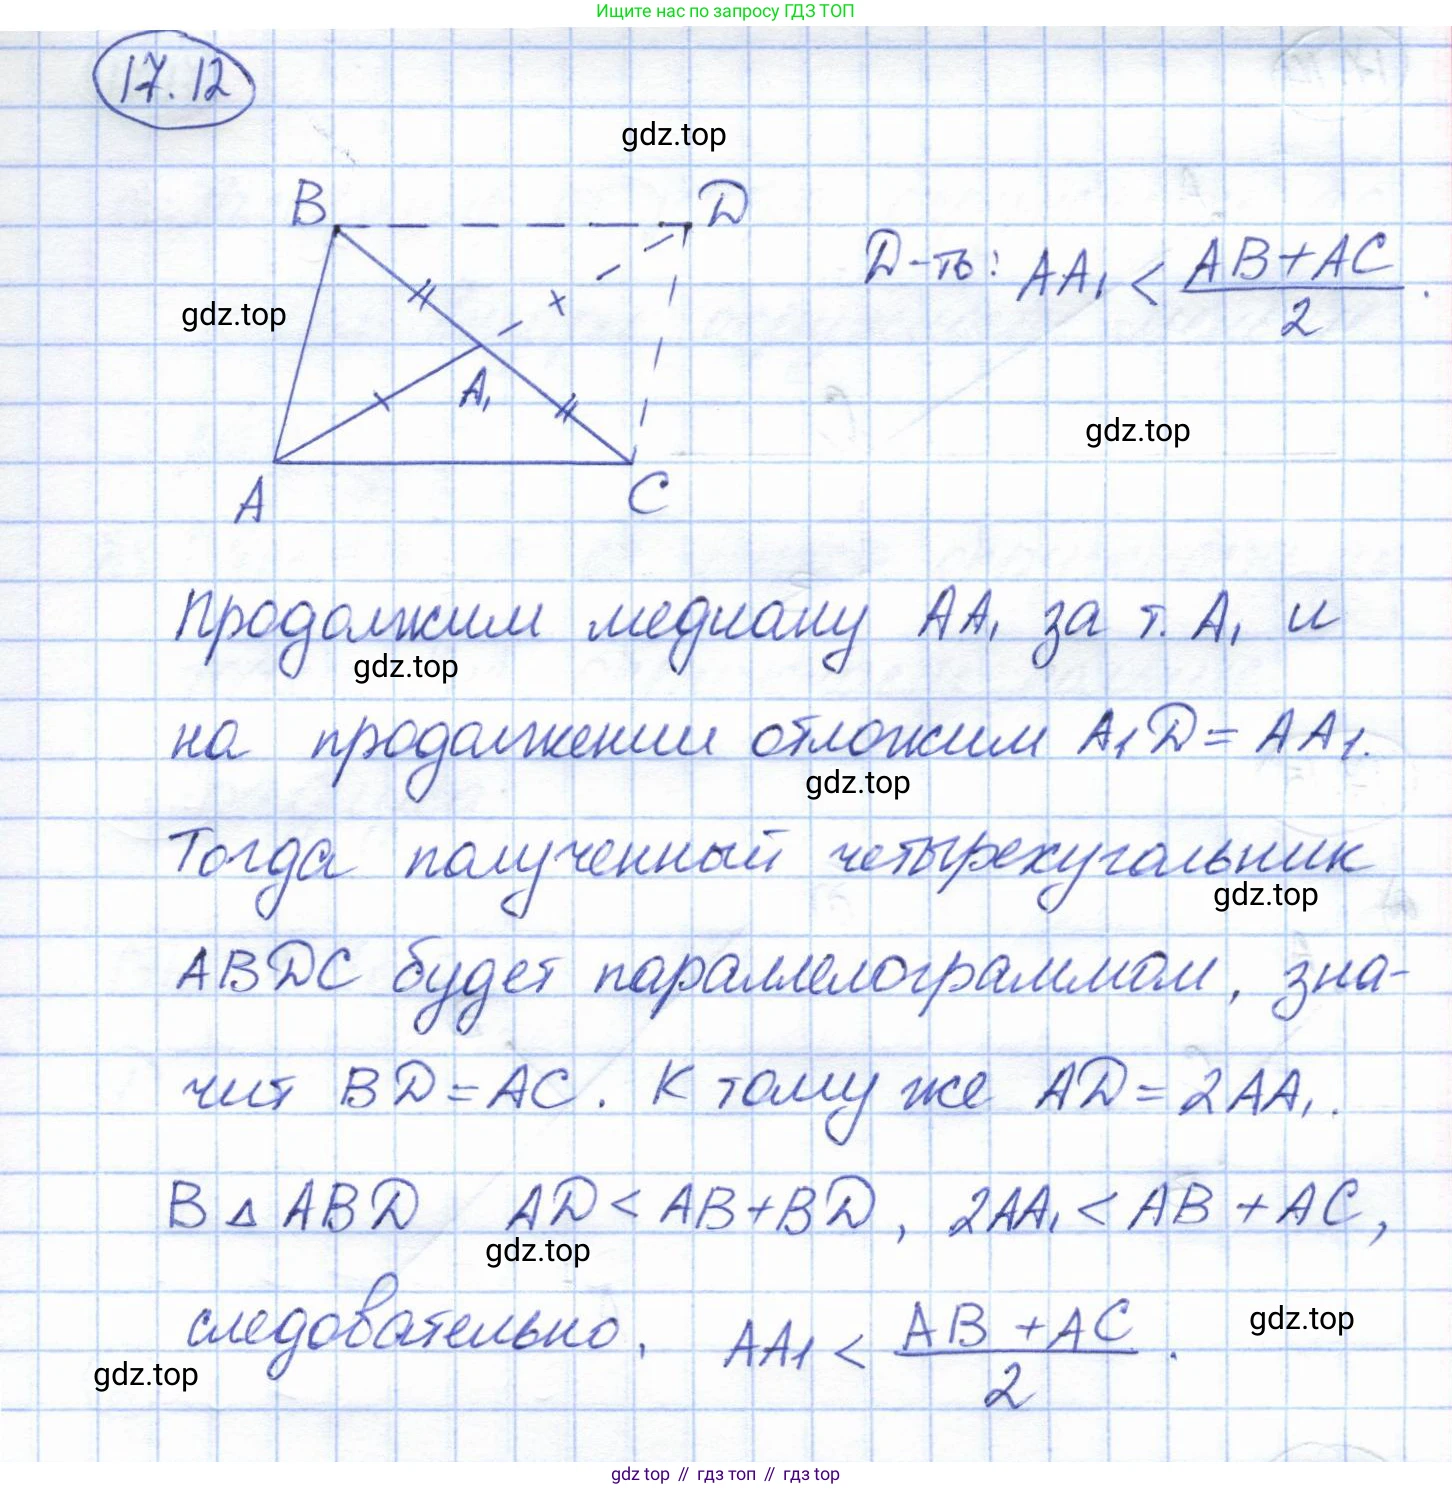 Ищите нас по запросу ГДЗ ТОП
17.12
gdz.top
B
D
Д-ть: AA₁ < (AB+AC)/2.
gdz.top
A₁
gdz.top
A
C
Продолжим медиану AA₁ за т. A₁ и
gdz.top
на продолжении отложим A₁D = AA₁.
gdz.top
Тогда полученный четырехугольник
gdz.top
ABDC будет параллелограммом, зна-
чит BD = AC. К тому же AD = 2AA₁.
В △ ABD AD < AB+BD, 2AA₁ < AB + AC,
gdz.top
следовательно, AA₁ < (AB + AC)/2.
gdz.top
gdz.top
gdz top // гдз топ // гдз top